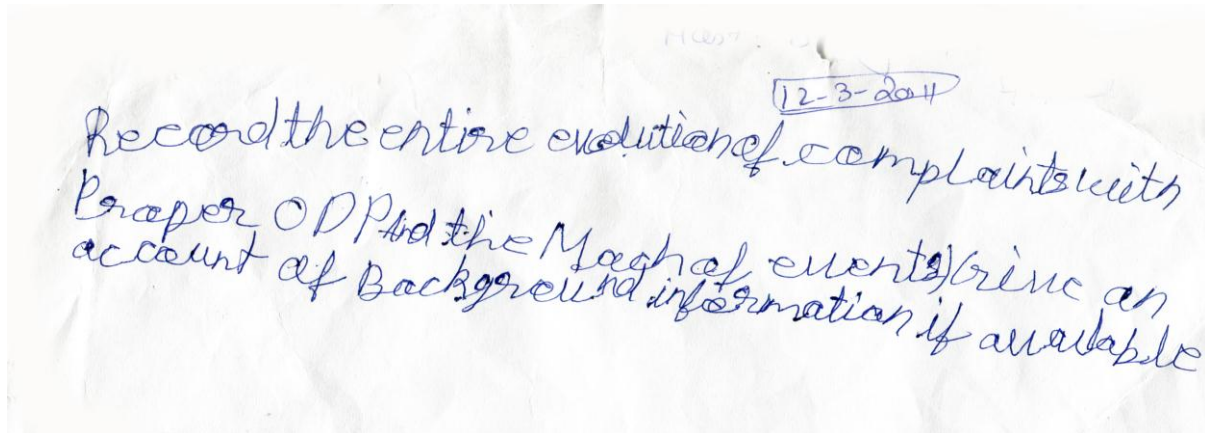 12-3-2011
Record the entire evolution of complaints with
Proper ODP And the Mach of events) Give an
account of Background information if available